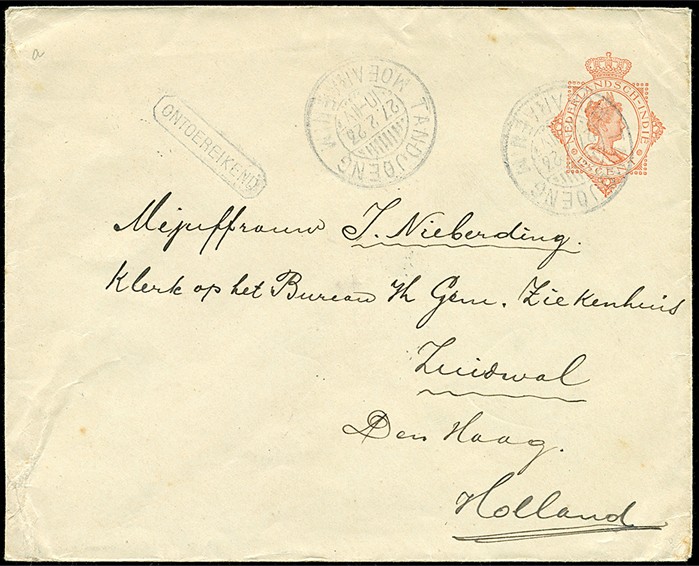 a
ONTOEREIKEND
TANDJOENG
MOEARA ENIM
27.2.23
NEDERLANDSCH-INDIË
12½ CENT
Mejuffrouw J. Nieberding.
Klerk op het Bureau Gem. Ziekenhuis
Zuidwal
Den Haag.
Holland